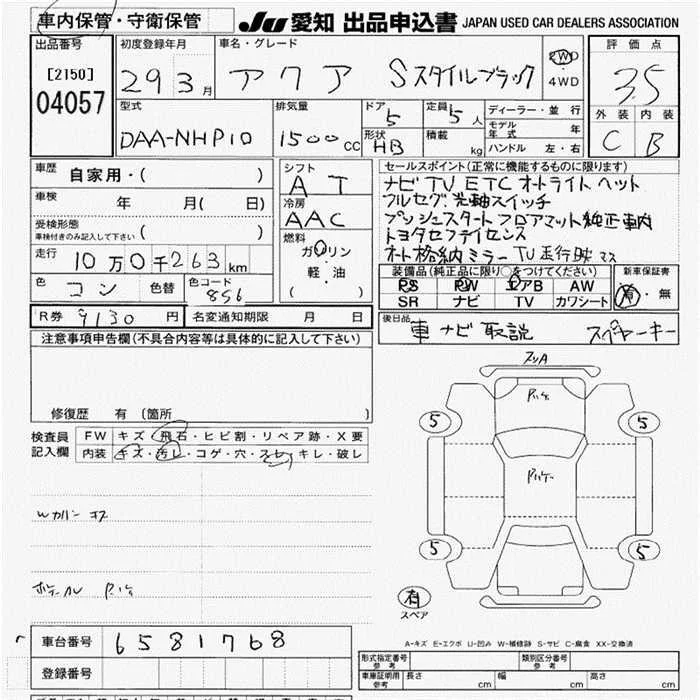 車内保管・守衛保管
JU 愛知 出品申込書 JAPAN USED CAR DEALERS ASSOCIATION
出品番号
[2150]
04057
初度登録年月
29 3 月
車名・グレード
アクア Sスタイルブラック
2WD
・
4WD
評価点
3.5
外装 内装
C B
型式
DAA-NHP10
排気量
1500 cc
ドア
5
定員
5 人
形状
HB
積載
kg
ディーラー・並行
モデル年式 年
ハンドル 左・右
車歴
自家用・( )
車検
年 月( 日)
受検形態
車検付きのみ記入して下さい ( )
走行
10万0千263 km
色
コン
色替
色コード
856
R券 9130 円
名変通知期限 月 日
シフト
AT
冷房
AAC
燃料
ガソリン
・
軽・油
( )
セールスポイント(正常に機能するものに限ります)
ナビ TV ETC オートライト ヘット
フルセグ 光軸スイッチ
プッシュスタート フロアマット 純正車内
トヨタセーフティセンス
オート格納ミラー TV走行映
装備品(純正品に限り○をつけてください)
PS PW エアB AW
SR ナビ TV カワシート
新車保証書
有・無
後日品
車 ナビ 取説 スペヤーキー
注意事項申告欄(不具合内容等は具体的に記入して下さい)
修復歴 有 (箇所 )
検査員
記入欄
FW キズ・飛石・ヒビ割・リペア跡・X要
内装 キズ・汚レ・コゲ・穴・スレ・キレ・破レ
スリA
5 5
5 5
有
スペア
A-キズ E-エクボ U-凹み W-補修跡 S-サビ C-腐食 XX-交換済
車台番号 6581768
登録番号
形式指定番号
参考
類別区分番号
参考
車庫証明用
参考
長さ cm
幅 cm
高さ cm